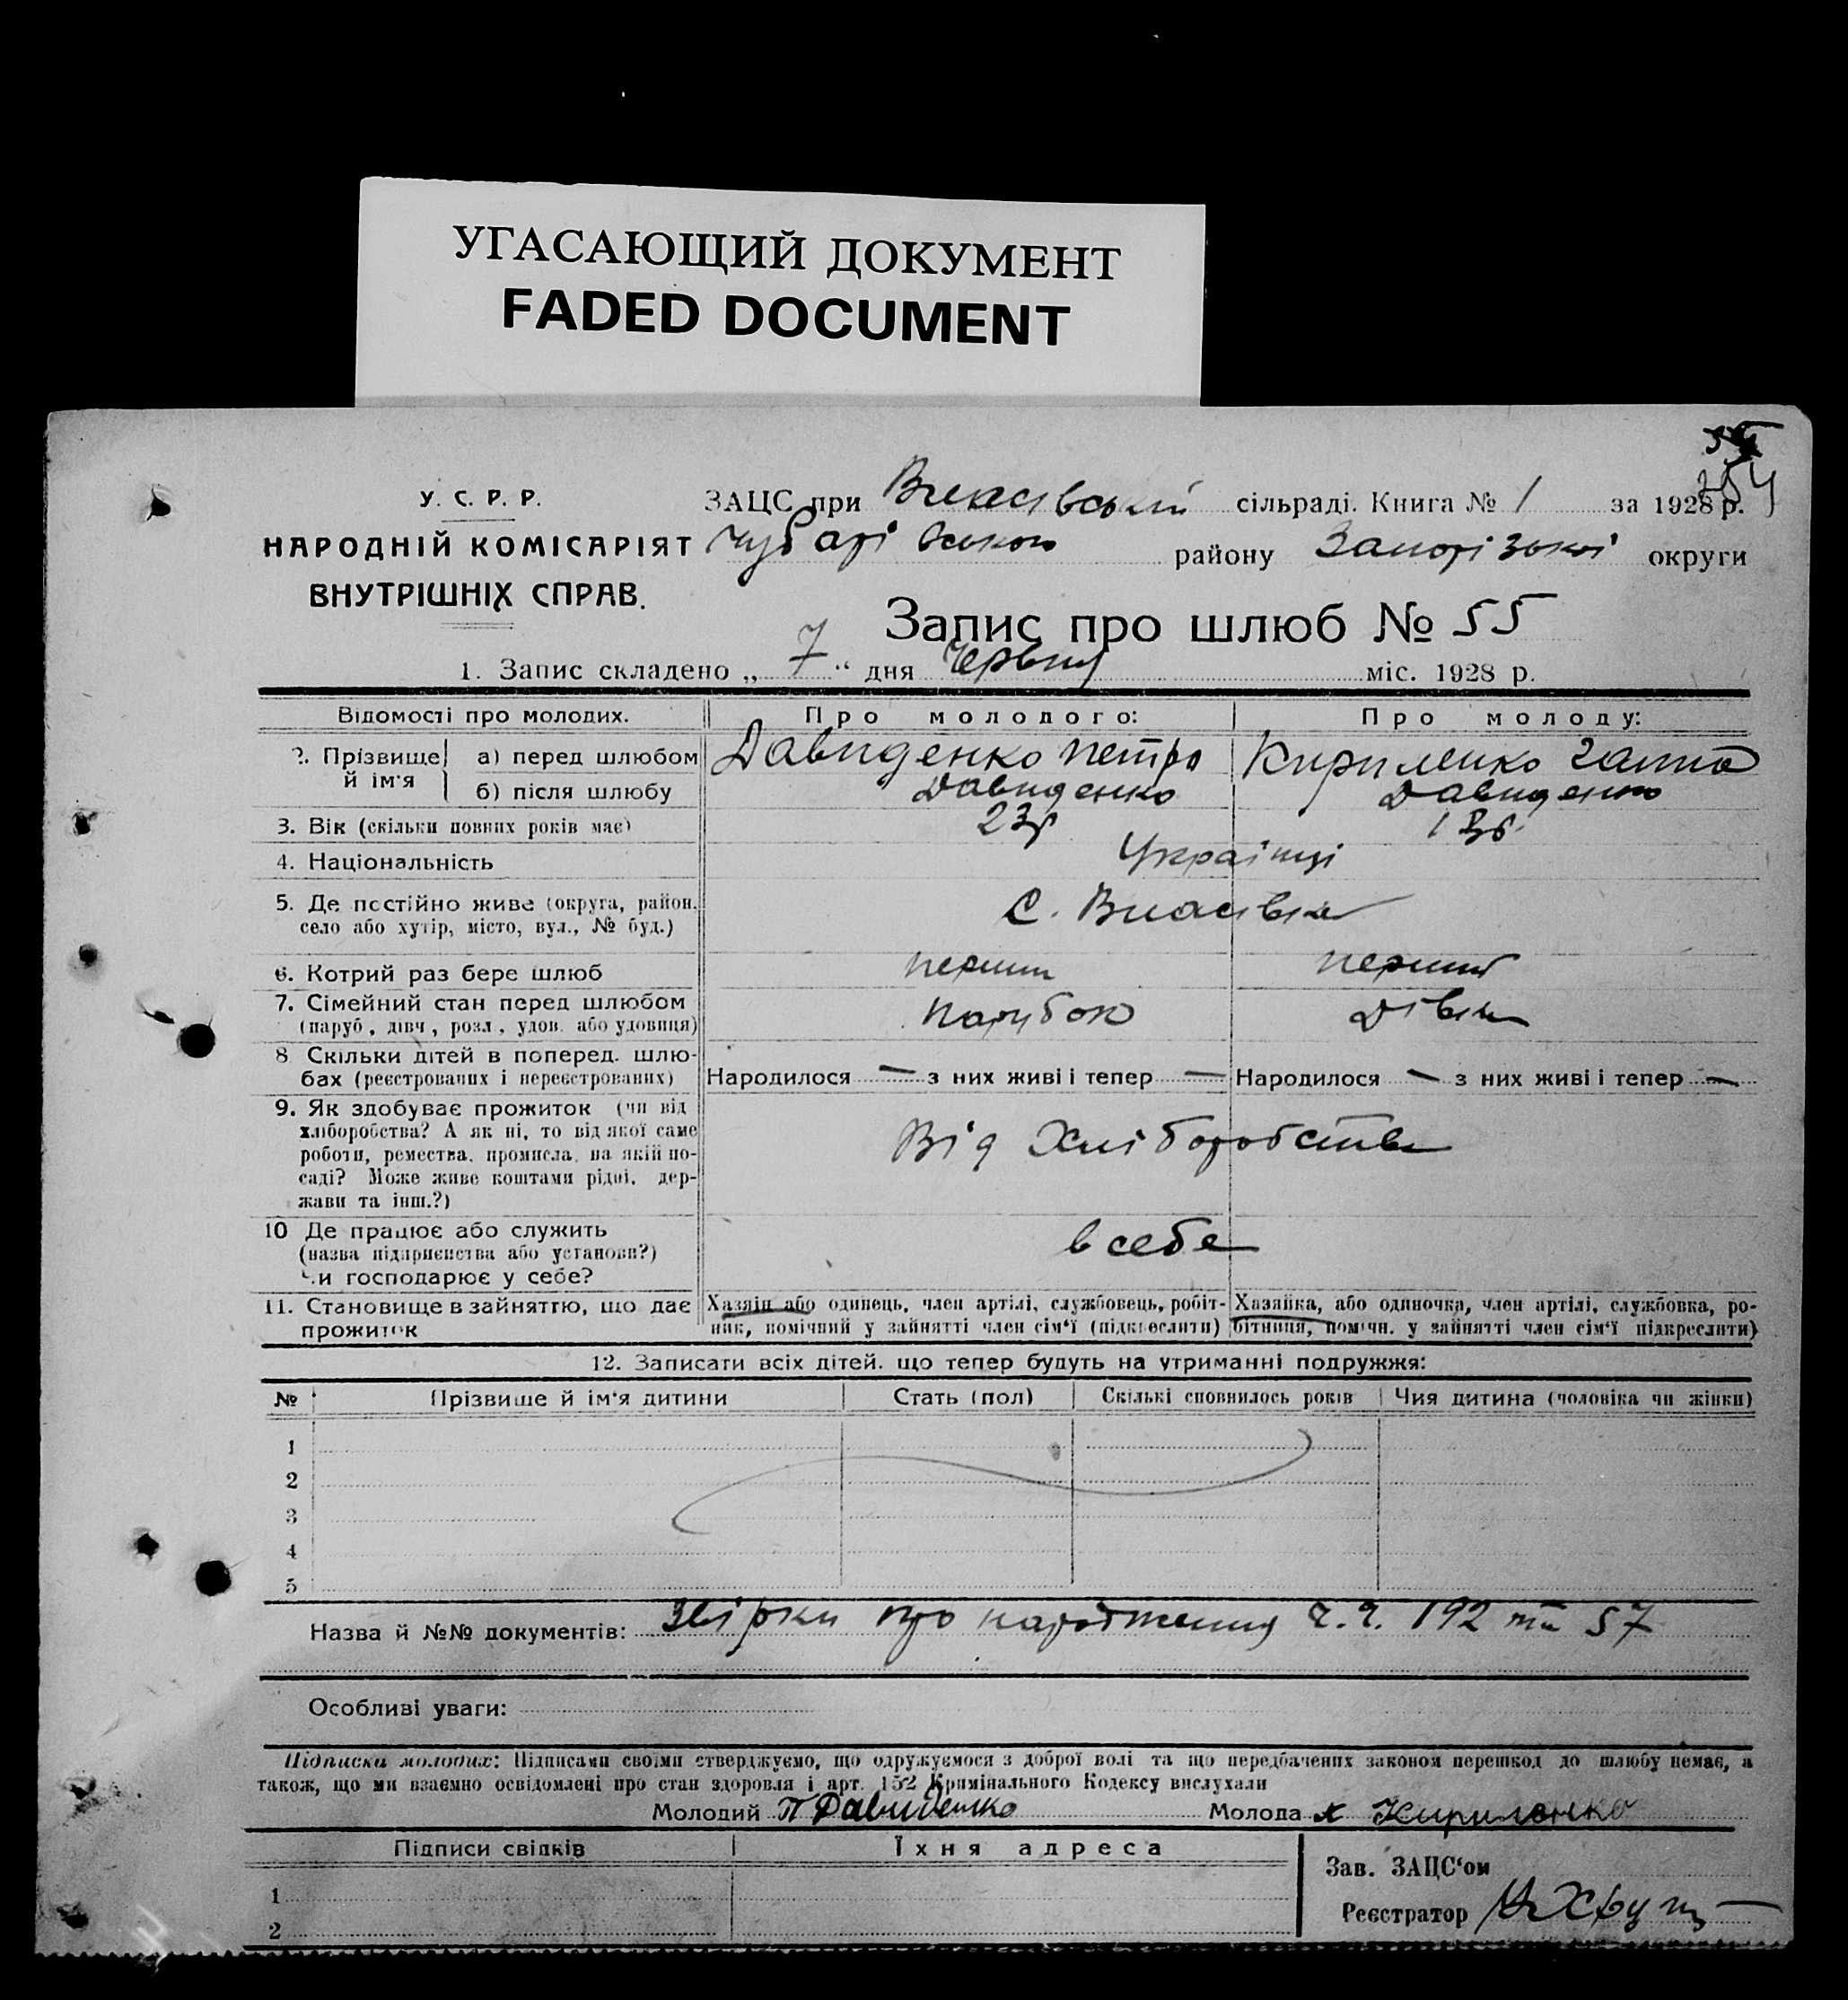 УГАСАЮЩИЙ ДОКУМЕНТ
FADED DOCUMENT
254
У. С. Р. Р.
НАРОДНІЙ КОМІСАРІЯТ
ВНУТРІШНІХ СПРАВ.
ЗАЦС при Власівській сільраді. Книга № 1 за 1928 р.
Чубарівського району Запорізької округи
Запис про шлюб № 55
1. Запис складено „ 7 “ дня Червня міс. 1928 р.
Відомості про молодих. Про молодого: Про молоду:
2. Прізвище й ім'я а) перед шлюбом Давиденко Петро Кириленко Ганна
б) після шлюбу Давиденко Давиденко
3. Вік (скільки повних років має) 23р
4. Національність Українці
5. Де постійно живе (округа, район, село або хутір, місто, вул., № буд.) С. Власівка
6. Котрий раз бере шлюб перший перший
7. Сімейний стан перед шлюбом (паруб., дівч., розл., удов. або удовиця) парубок дівка
8. Скільки дітей в поперед. шлю-
бах (реєстрованих і нереєстрованих) Народилося — з них живі і тепер — Народилося — з них живі і тепер —
9. Як здобуває прожиток (чи від
хліборобства? А як ні, то від якої саме
роботи, ремества, промисла, на якій по-
саді? Може живе коштами рідні, дер-
жави та інш.?) Від Хліборобства
10 Де працює або служить
(назва підприємства або установи?)
Чи господарює у себе? в себе
11. Становище в зайняттю, що дає прожиток
Хазяін або одинець, член артілі, службовець, робіт-
ник, помічний у зайнятті член сім'ї (підкреслити)
Хазяйка, або одиночка, член артілі, службовка, ро-
бітниця, помічн. у зайнятті член сім'ї підкреслити)
12. Записати всіх дітей, що тепер будуть на утриманні подружжя:
№ Прізвище й ім'я дитини Стать (пол) Скількі сповнилось років Чия дитина (чоловіка чи жінки)
1
2
3
4
5
Назва й №№ документів: Звірки про народження ч.ч. 192 та 57
Особливі уваги:
Підписки молодих: Підписами своїми стверджуємо, що одружуємося з доброї волі та що передбачених законом перешкод до шлюбу немає, а
також, що ми взаємно освідомлені про стан здоровля і арт. 152 Кримінального Кодексу вислухали
Молодий П Давиденко Молода х Кириленко
Підписи свідків Їхня адреса
Зав. ЗАЦС'ом
1
Реєстратор
2